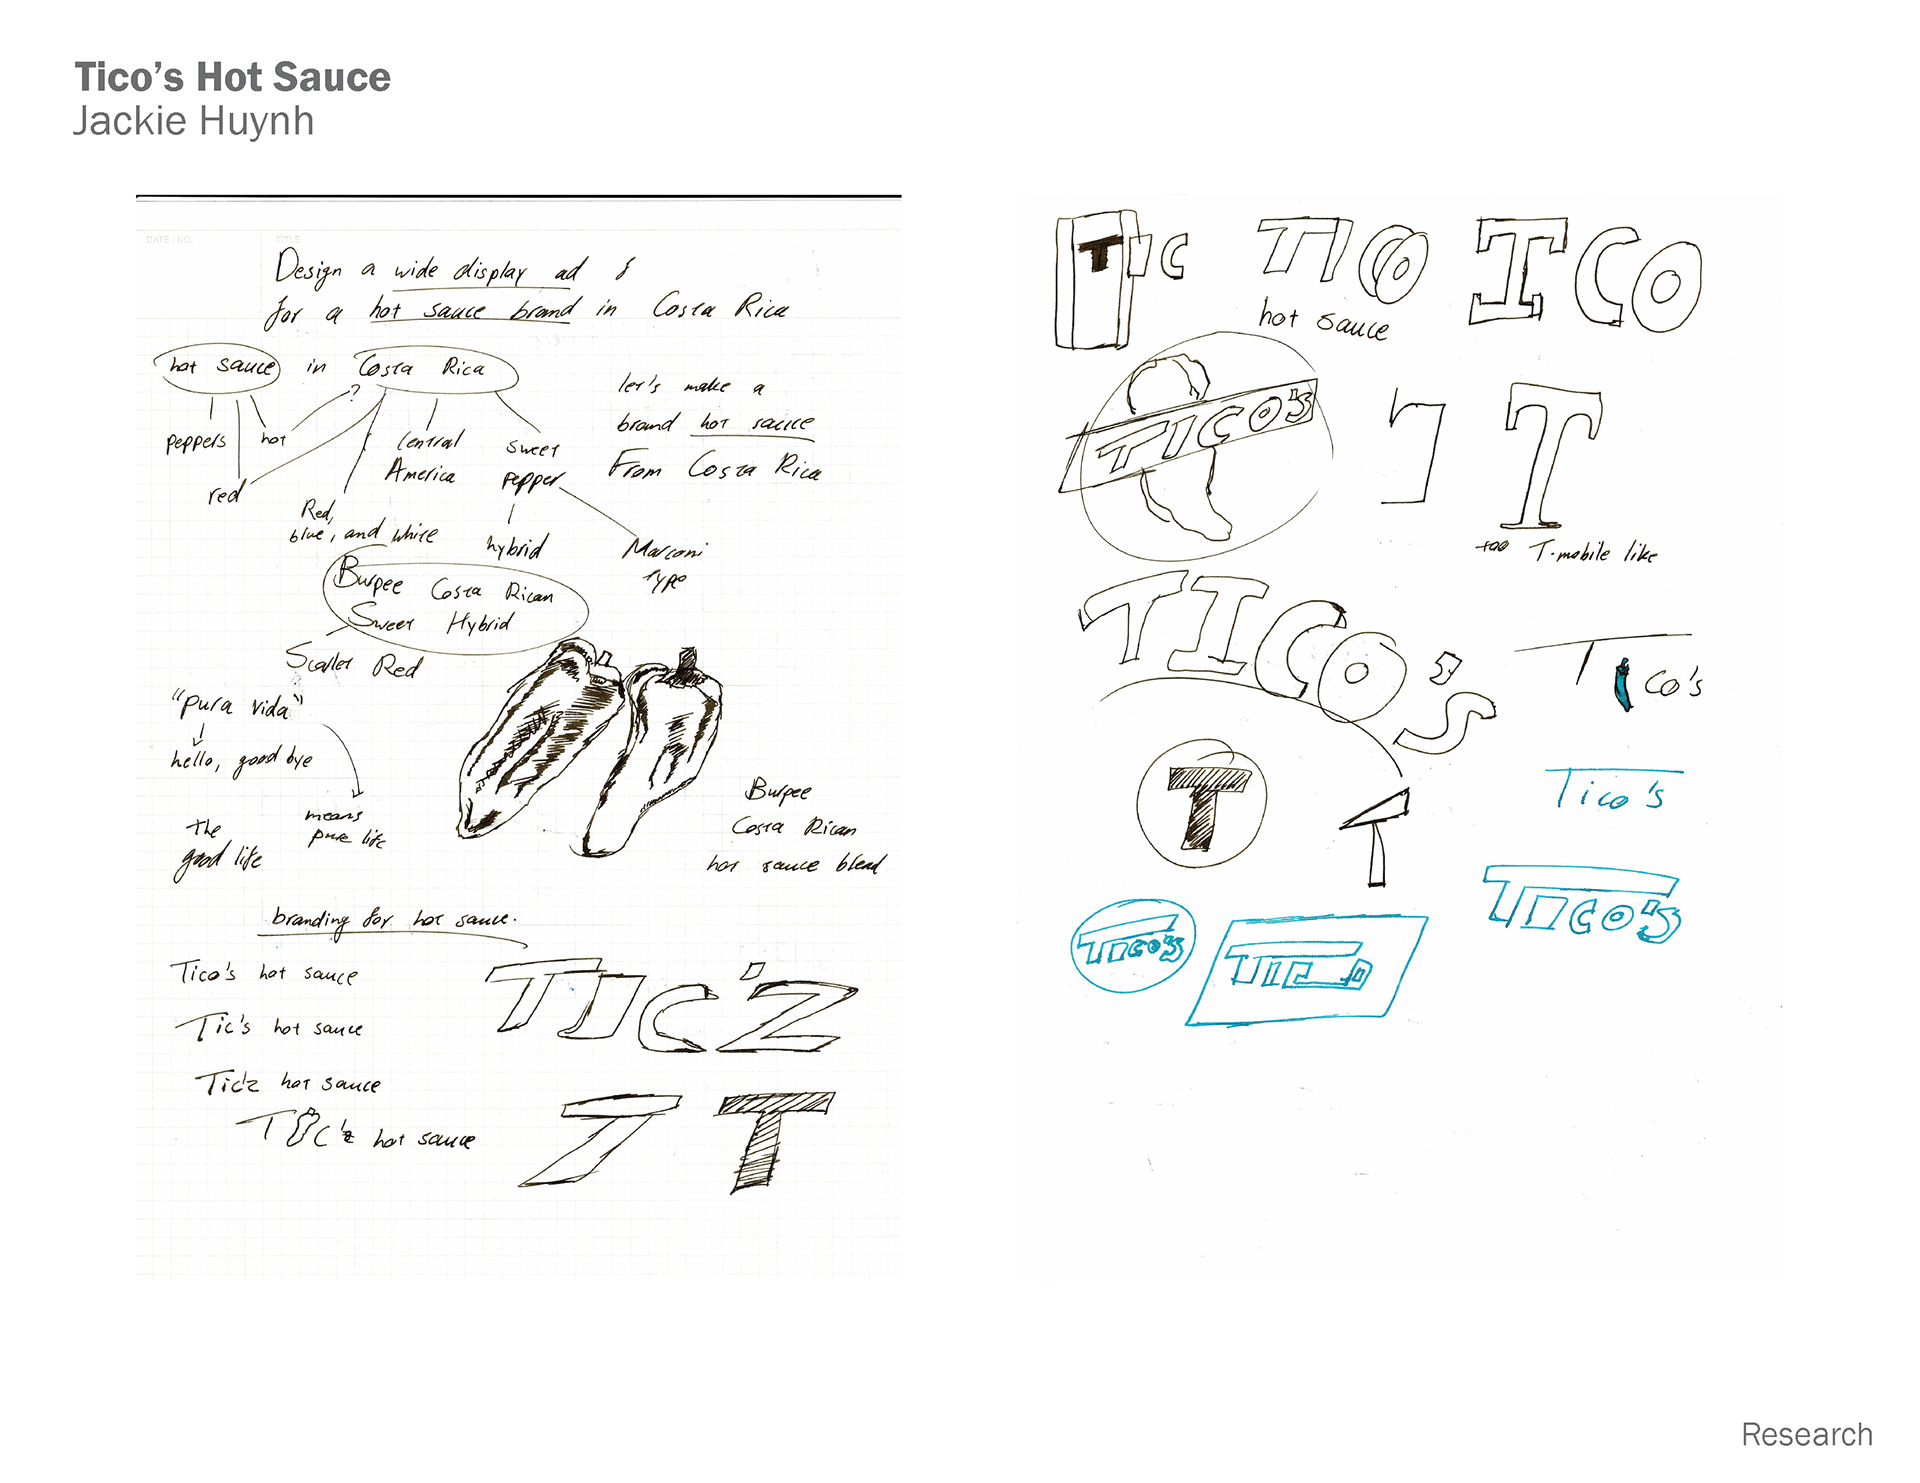 Tico's Hot Sauce
Jackie Huynh
DATE/NO.
TITLE
Design a wide display ad
for a hot sauce brand in Costa Rica
hot sauce in Costa Rica
?
peppers
hot
red
Central
America
sweet
pepper
let's make a
brand hot sauce
From Costa Rica
Red,
blue, and white
hybrid
Marconi
type
Burpee Costa Rican
Sweet Hybrid
Scarlet Red
"pura vida"
hello, good bye
the
good life
means
pure life
Burpee
Costa Rican
hot sauce blend
branding for hot sauce.
Tico's hot sauce
Tic's hot sauce
Tic'z hot sauce
TIC'z hot sauce
TIC'Z
T T
TIC
TICO
hot sauce
TICO
TICO'S
T
too T-mobile like
TICO's
Tico's
T
T
Tico's
TICO'S
TICO'S
TICO
Research